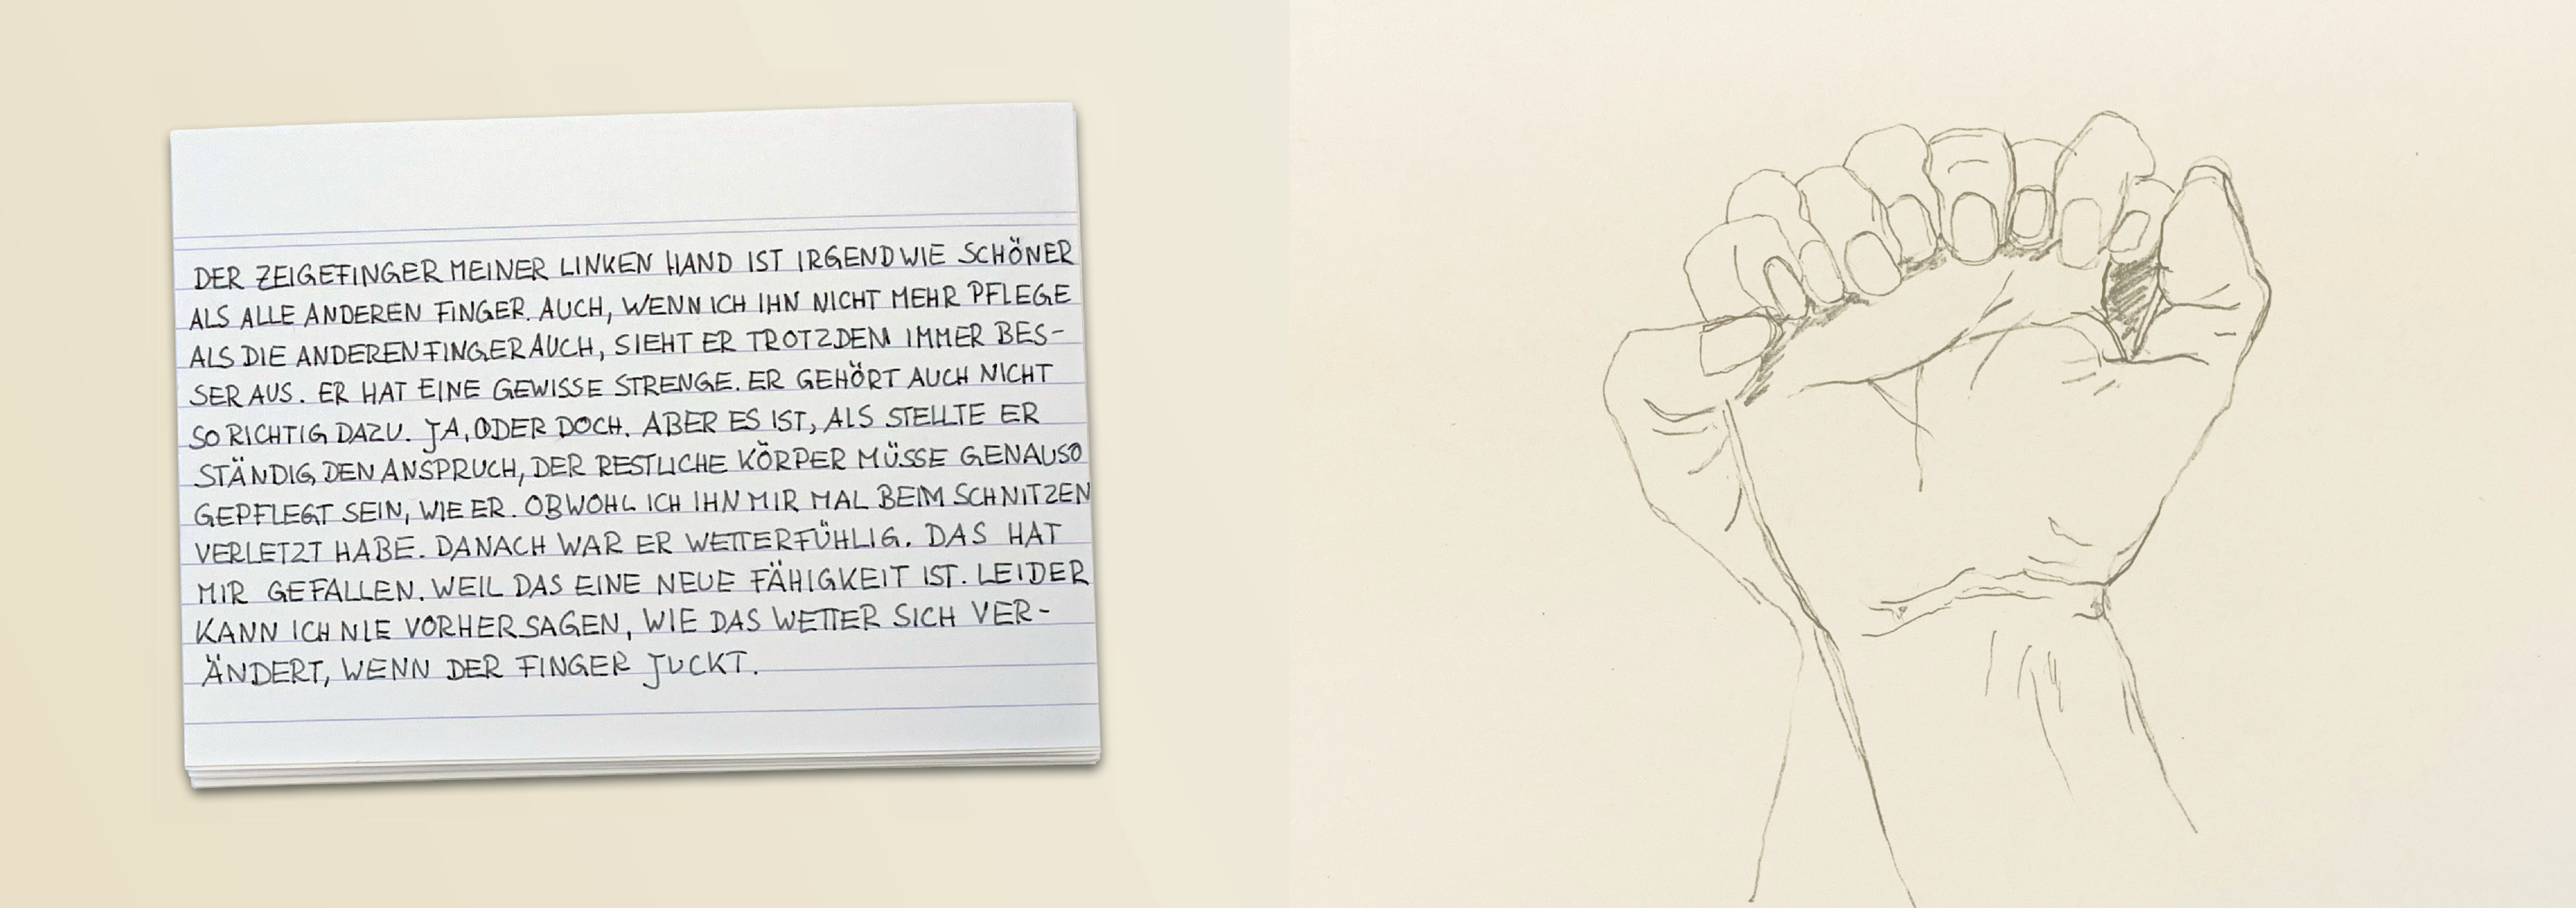 DER ZEIGEFINGER MEINER LINKEN HAND IST IRGENDWIE SCHÖNER
ALS ALLE ANDEREN FINGER. AUCH, WENN ICH IHN NICHT MEHR PFLEGE
ALS DIE ANDEREN FINGER AUCH, SIEHT ER TROTZDEM IMMER BES-
SER AUS. ER HAT EINE GEWISSE STRENGE. ER GEHÖRT AUCH NICHT
SO RICHTIG DAZU. JA, ODER DOCH. ABER ES IST, ALS STELLTE ER
STÄNDIG DEN ANSPRUCH, DER RESTLICHE KÖRPER MÜSSE GENAUSO
GEPFLEGT SEIN, WIE ER. OBWOHL ICH IHN MIR MAL BEIM SCHNITZEN
VERLETZT HABE. DANACH WAR ER WETTERFÜHLIG. DAS HAT
MIR GEFALLEN. WEIL DAS EINE NEUE FÄHIGKEIT IST. LEIDER
KANN ICH NIE VORHERSAGEN, WIE DAS WETTER SICH VER-
ÄNDERT, WENN DER FINGER JUCKT.